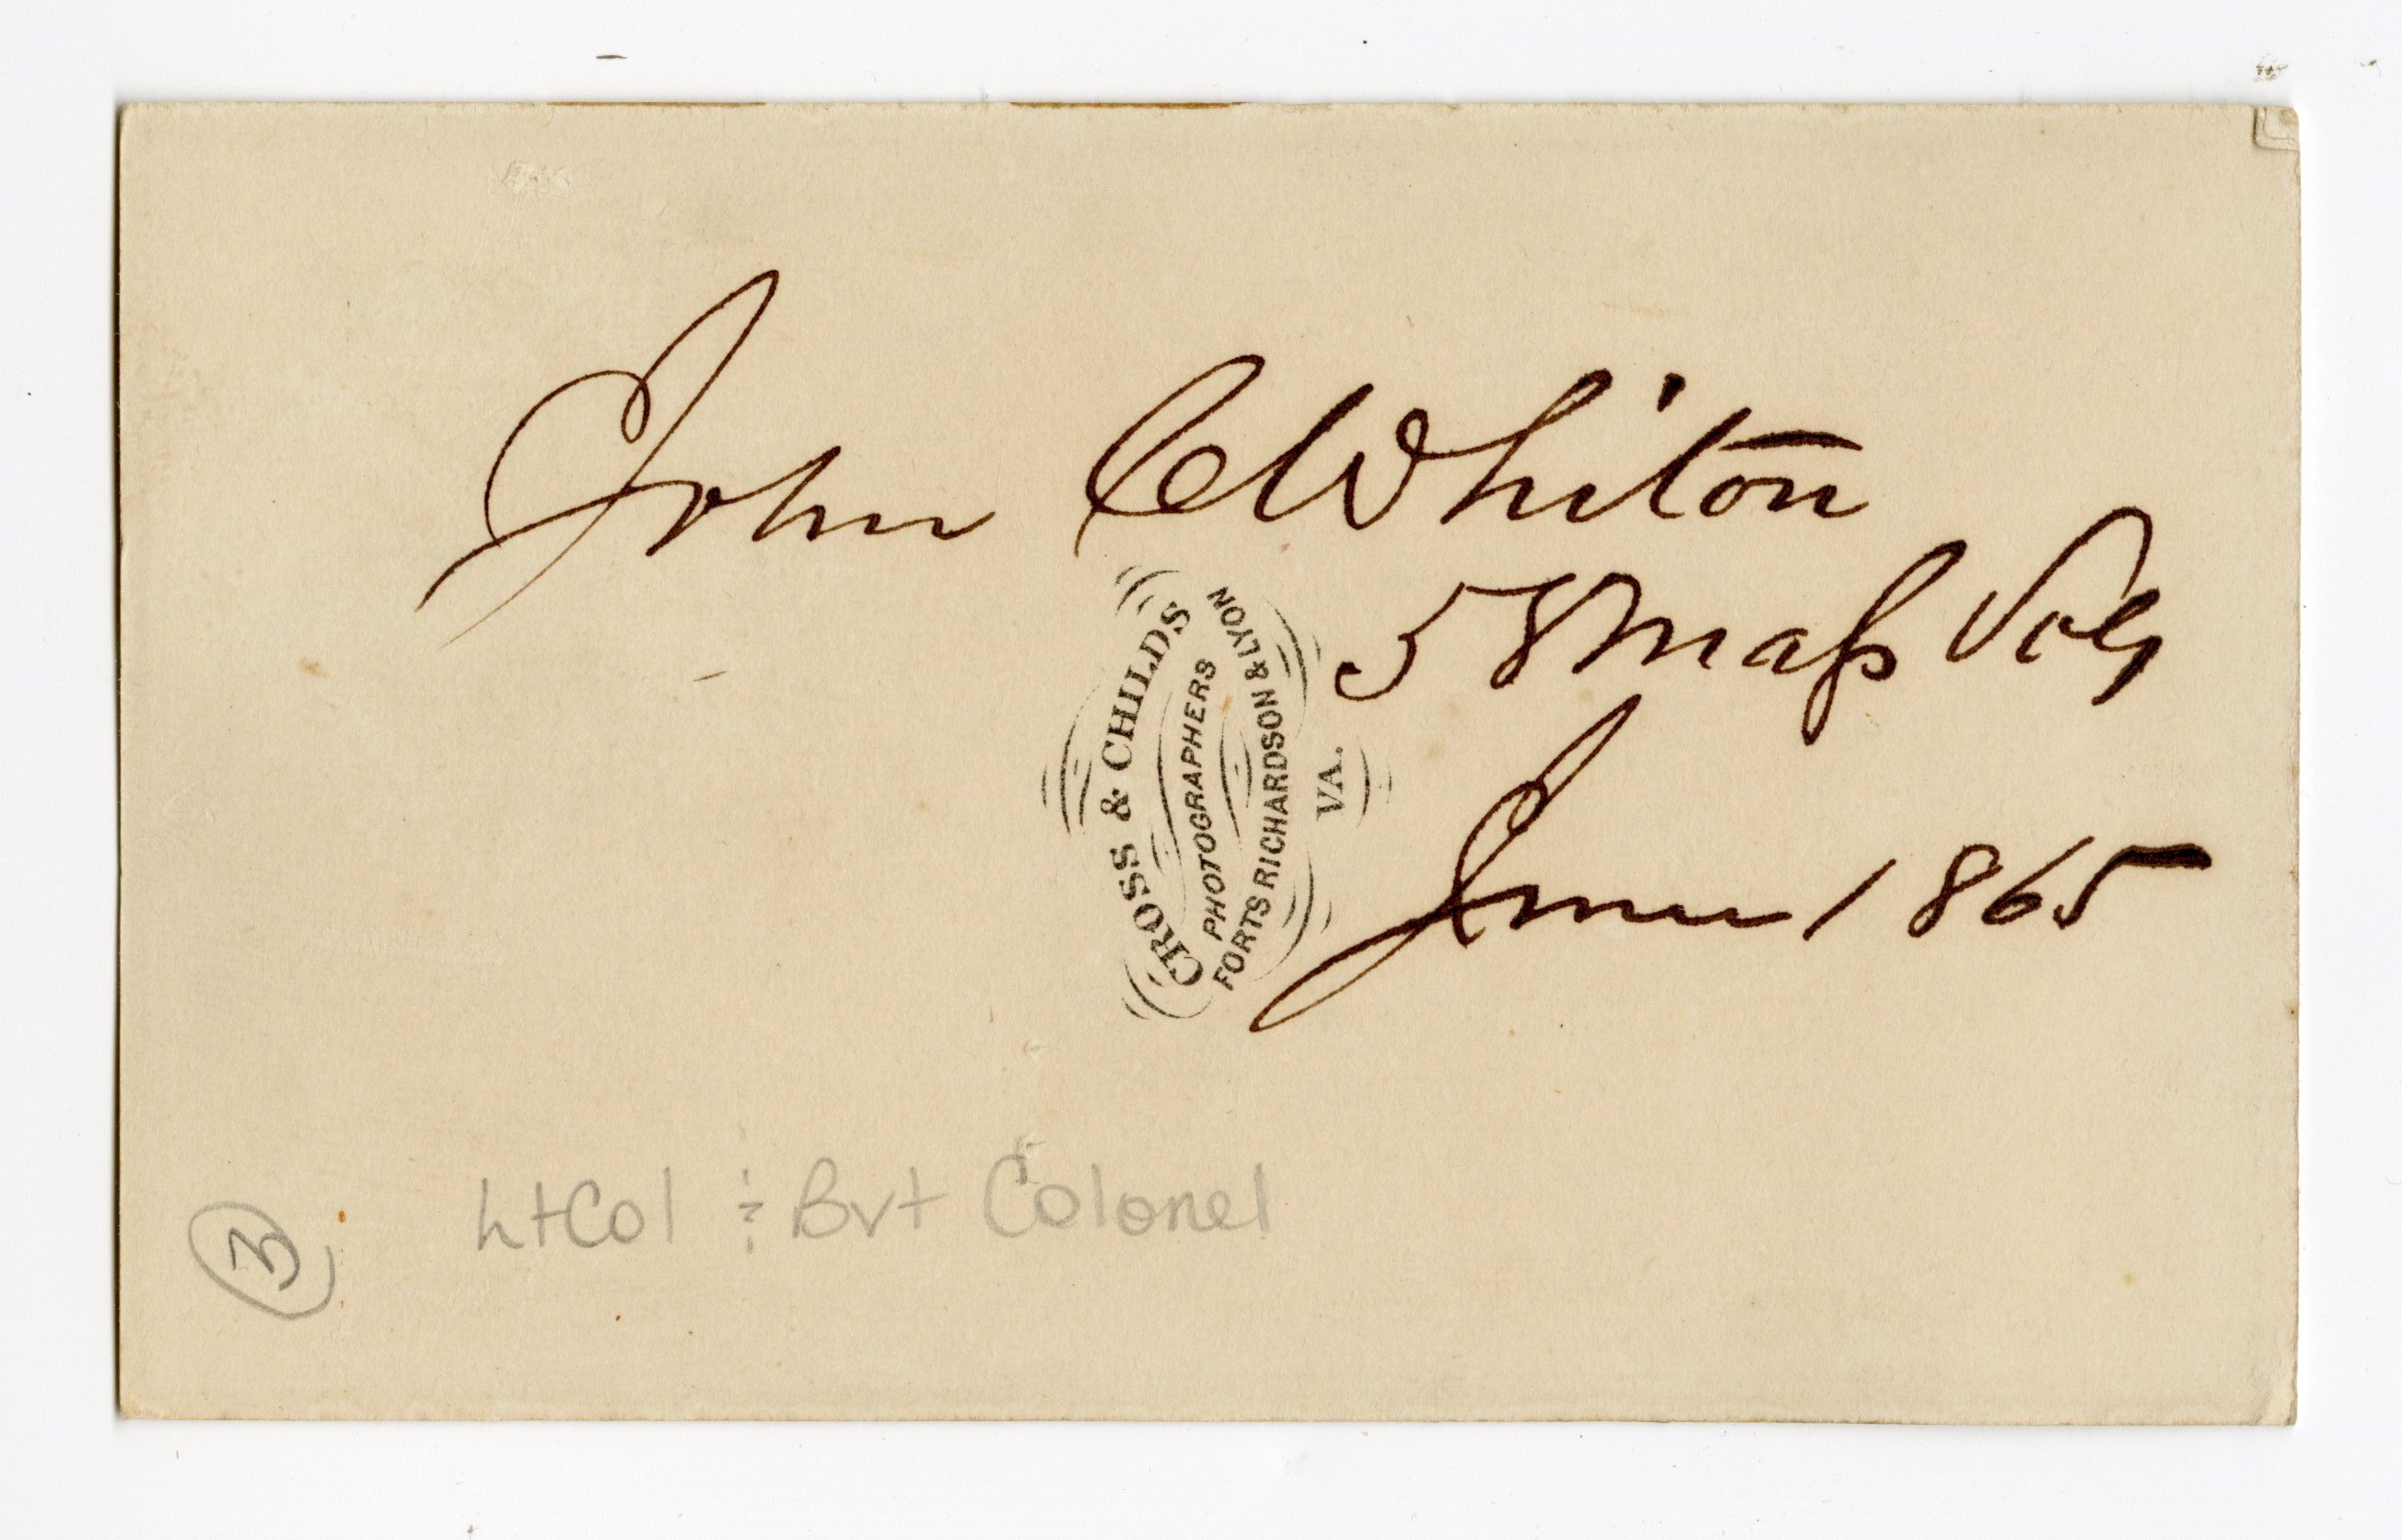 John C Whiton
58 Mass Vols
June 1865
CROSS & CHILDS
PHOTOGRAPHERS
FORTS RICHARDSON & LYON
VA.
Lt Col & Bvt Colonel